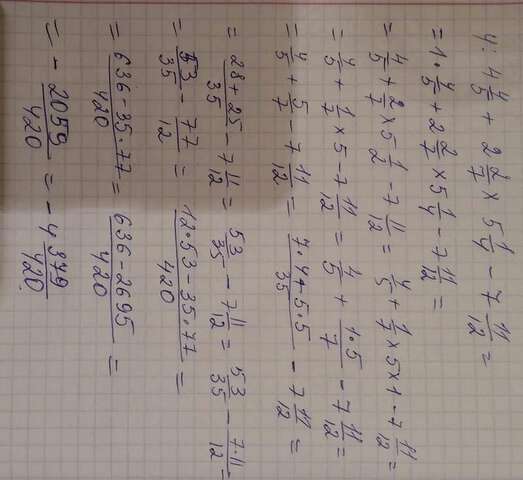 4 : 4 4/5 + 2 2/7 × 5 1/4 - 7 11/12 =
= 1 · 4/5 + 2 2/7 × 5 1/4 - 7 11/12 =
= 4/5 + 2/7 × 5 1/2 - 7 11/12 = 4/5 + 1/7 × 5 × 1 - 7 11/12 =
= 4/5 + 1/7 × 5 - 7 11/12 = 4/5 + 1·5/7 - 7 11/12 =
= 4/5 + 5/7 - 7 11/12 = 7·4+5·5/35 - 7 11/12 =
= 28+25/35 - 7 11/12 = 53/35 - 7 11/12 = 53/35 - 7·11/12 =
= 53/35 - 77/12 = 12·53-35·77/420 =
= 636-35·77/420 = 636-2695/420 =
= - 2059/420 = - 4 379/420